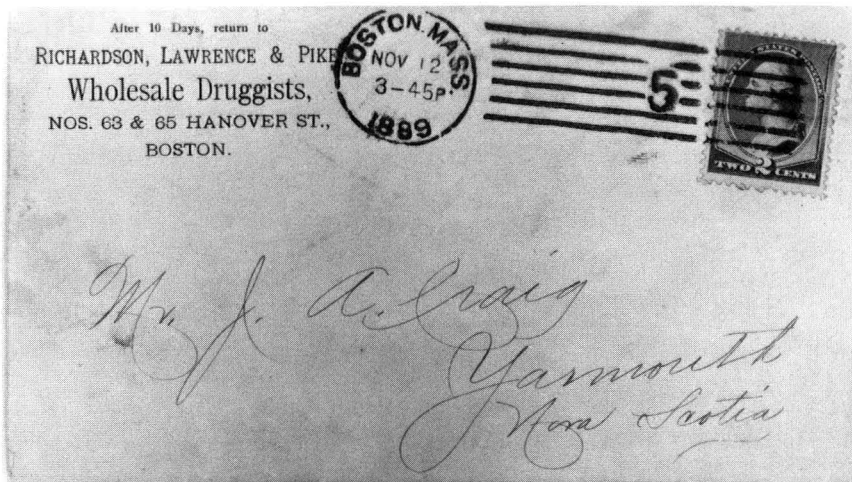 After 10 Days, return to
RICHARDSON, LAWRENCE & PIKE
Wholesale Druggists,
NOS. 63 & 65 HANOVER ST.,
BOSTON.
BOSTON. MASS
NOV 12
3-45P.
1889
5
TWO 2 CENTS
Mr. J. A. Craig
Yarmouth
Nova Scotia